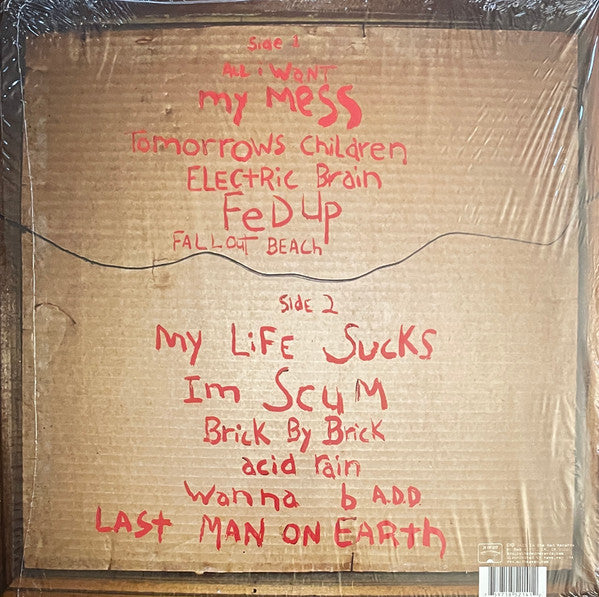 Side 1
ALL i WANT
my Mess
Tomorrows children
ELECtRic Brain
FeD Up
FALLOuT BEACh
SidE 2
My LiFE SucKs
Im ScuM
Brick By Brick
acid rain
Wanna b A.D.D.
LAST MAN ON EARTh